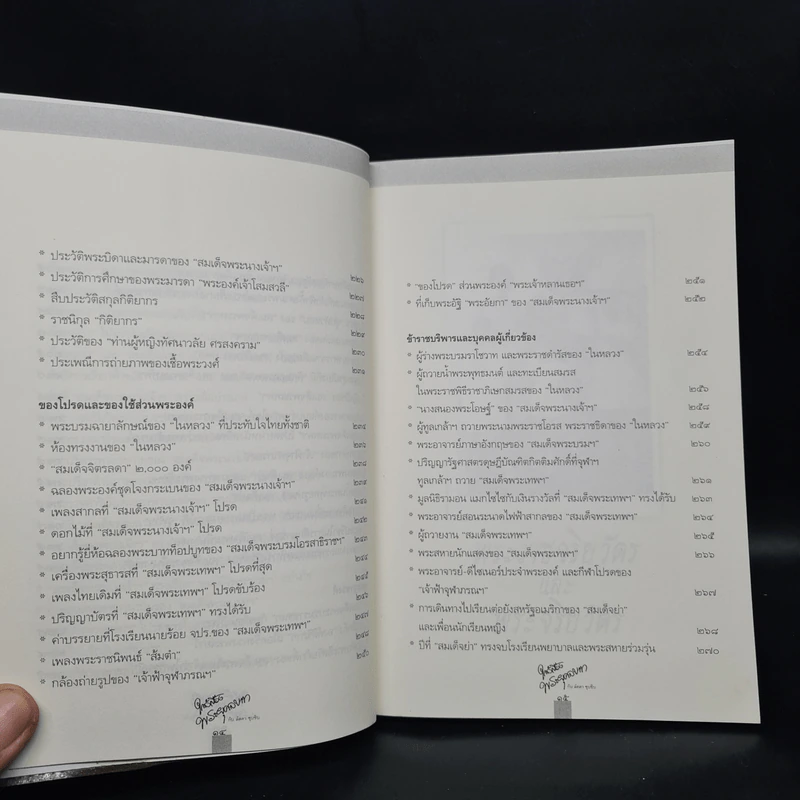 * ประวัติพระบิดาและมารดาของ "สมเด็จพระนางเจ้าฯ" ๒๒๖
* ประวัติการศึกษาของพระมารดา "พระองค์เจ้าโสมสวลี" ๒๒๗
* สืบประวัติสกุลกิติยากร ๒๒๘
* ราชนิกุล "กิติยากร" ๒๒๙
* ประวัติของ "ท่านผู้หญิงทัศนาวลัย ศรสงคราม" ๒๓๐
* ประเพณีการถ่ายภาพของเชื้อพระวงศ์ ๒๓๑
ของโปรดและของใช้ส่วนพระองค์
* พระบรมฉายาลักษณ์ของ "ในหลวง" ที่ประทับใจไทยทั้งชาติ ๒๓๔
* ห้องทรงงานของ "ในหลวง" ๒๓๖
* "สมเด็จจิตรลดา" ๒,๐๐๐ องค์ ๒๓๘
* ฉลองพระองค์ชุดโจงกระเบนของ "สมเด็จพระนางเจ้าฯ"
* เพลงสากลที่ "สมเด็จพระนางเจ้าฯ" โปรด
* ดอกไม้ที่ "สมเด็จพระนางเจ้าฯ" โปรด
* อยากรู้ยี่ห้อฉลองพระบาทท็อปบูทของ "สมเด็จพระบรมโอรสาธิราชฯ"
* เครื่องพระสุธารสที่ "สมเด็จพระเทพฯ" โปรดที่สุด
* เพลงไทยเดิมที่ "สมเด็จพระเทพฯ" โปรดขับร้อง
* ปริญญาบัตรที่ "สมเด็จพระเทพฯ" ทรงได้รับ ๒๔๖
* ค่าบรรยายที่โรงเรียนนายร้อย จปร.ของ "สมเด็จพระเทพฯ" ๒๔๗
* เพลงพระราชนิพนธ์ "ส้มตำ" ๒๔๘
* กล้องถ่ายรูปของ "เจ้าฟ้าจุฬาภรณฯ" ๒๕๐
๑๔
* "ของโปรด" ส่วนพระองค์ "พระเจ้าหลานเธอฯ" ๒๕๑
* ที่เก็บพระอัฐิ "พระอัยกา" ของ "สมเด็จพระนางเจ้าฯ" ๒๕๒
ข้าราชบริพารและบุคคลผู้เกี่ยวข้อง
* ผู้ร่างพระบรมราโชวาท และพระราชดำรัสของ "ในหลวง" ๒๕๔
* ผู้ถวายน้ำพระพุทธมนต์ และทะเบียนสมรส
ในพระราชพิธีราชาภิเษกสมรสของ "ในหลวง" ๒๕๖
* "นางสนองพระโอษฐ์" ของ "สมเด็จพระนางเจ้าฯ" ๒๕๘
* ผู้ทูลเกล้าฯ ถวายพระนามพระราชโอรส พระราชธิดาของ "ในหลวง" ๒๕๙
* พระอาจารย์ภาษาอังกฤษของ "สมเด็จพระบรมฯ" ๒๖๐
* ปริญญารัฐศาสตรดุษฎีบัณฑิตกิตติมศักดิ์ที่จุฬาฯ
ทูลเกล้าฯ ถวาย "สมเด็จพระเทพฯ" ๒๖๑
* มูลนิธิรามอน แมกไซไซกับเงินรางวัลที่ "สมเด็จพระเทพฯ" ทรงได้รับ ๒๖๓
* พระอาจารย์สอนระนาดไฟฟ้าสากลของ "สมเด็จพระเทพฯ" ๒๖๔
* ผู้ถวายงาน "สมเด็จพระเทพฯ" ๒๖๕
* พระสหายนักแสดงของ "สมเด็จพระเทพฯ" ๒๖๖
* พระอาจารย์-ดีไซเนอร์ประจำพระองค์ และกีฬาโปรดของ
"เจ้าฟ้าจุฬาภรณฯ" ๒๖๗
* การเดินทางไปเรียนต่อยังสหรัฐอเมริกาของ "สมเด็จย่า"
และเพื่อนนักเรียนหญิง ๒๖๘
* ปีที่ "สมเด็จย่า" ทรงจบโรงเรียนพยาบาลและพระสหายร่วมรุ่น ๒๗๐
๑๕